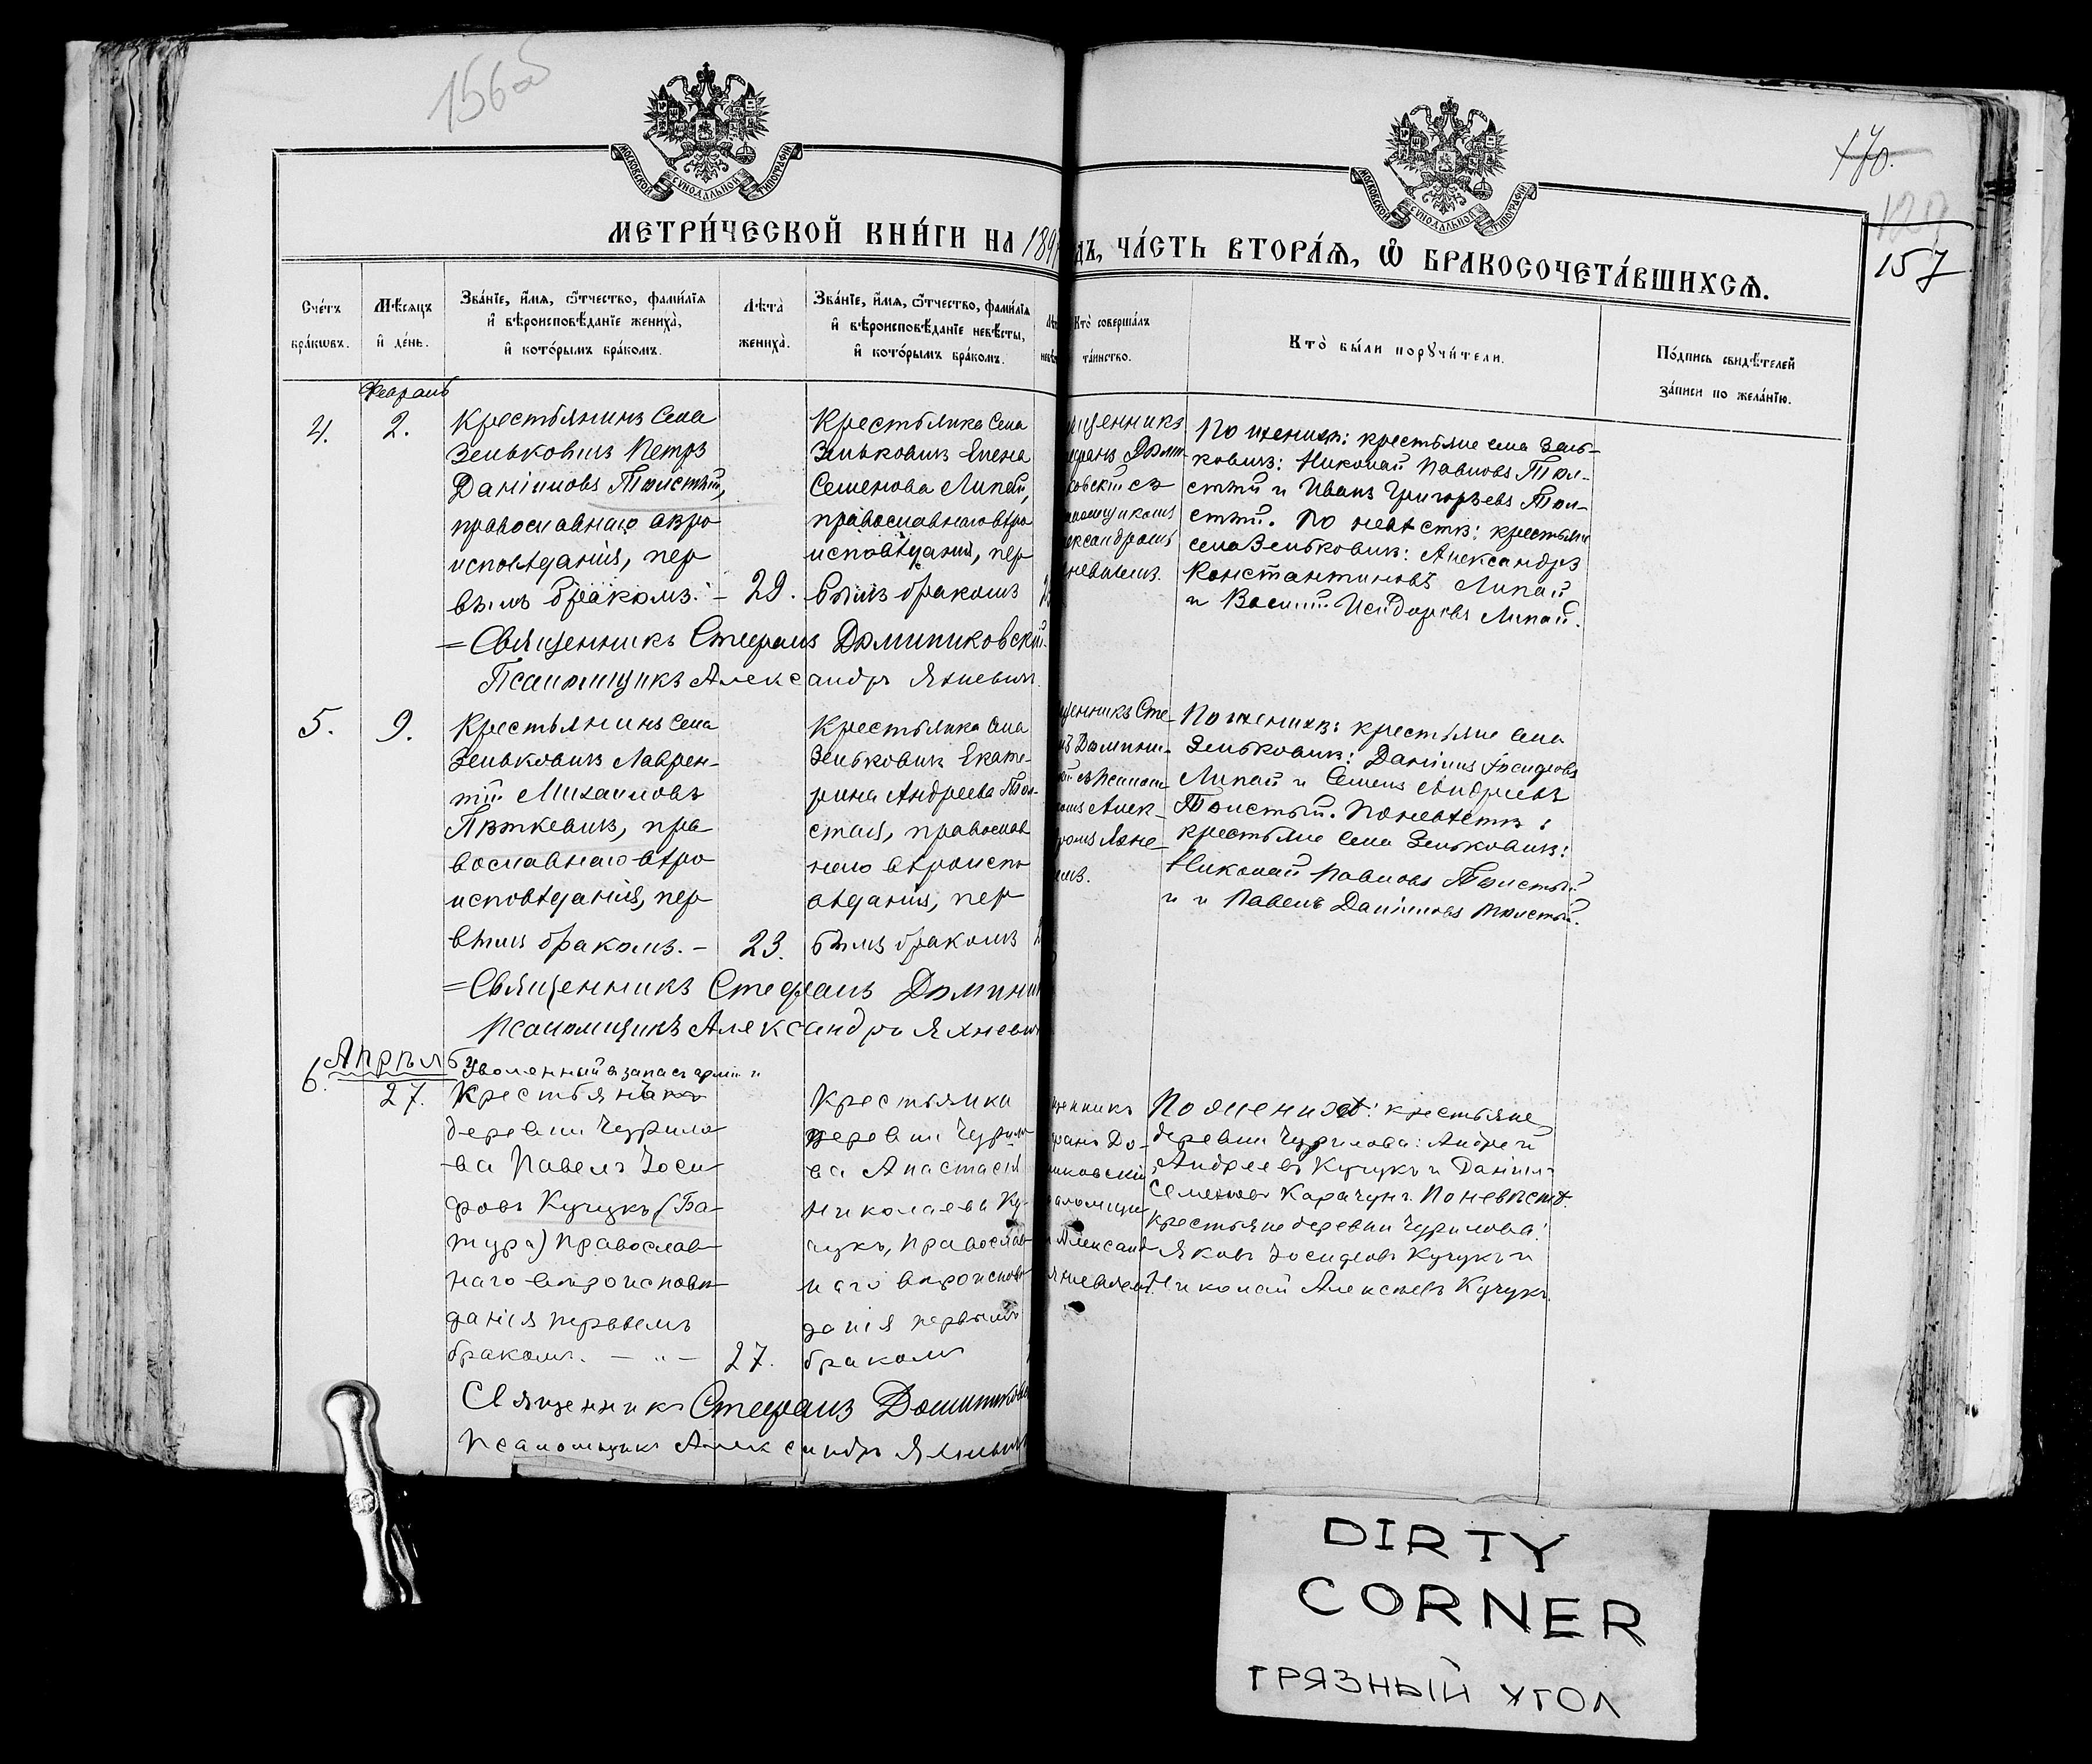 156об
МОСКОВСКОЙ СѴНОДАЛЬНОЙ ТИПОГРАФІИ
МОСКОВСКОЙ СѴНОДАЛЬНОЙ ТИПОГРАФІИ
170.
157
МЕТРИ́ЧЕСКОЙ КНИ́ГИ НА 189
ДЪ, ЧА́СТЬ ВТОРА́Ѧ, Ѽ БРАКОСОЧЕТА́ВШИХСѦ.
Сче́тъ
бра́кѡвъ.
Мѣ́сяцъ
и҆ де́нь.
Зва́нїе, и҆́мѧ, ѻ҆́тчество, фами́лїѧ
и҆ вѣроисповѣ́данїе жениха̀,
и҆ кото́рымъ бра́комъ.
Лѣта̀
жениха̀.
Зва́нїе, и҆́мѧ, ѻ҆́тчество, фами́лїѧ
и҆ вѣроисповѣ́данїе невѣ́сты,
и҆ кото́рымъ бра́комъ.
Кто̀ соверша́лъ
та́инство.
Кто̀ бы́ли порꙋчи́тели.
По́дпись свидѣ́телей
за́писи по жела́нїю.
Февраль
4.
2.
Крестьянинъ села
Зеньковичъ Петръ
Даніиловъ Толстый,
православнаго вѣро
исповѣданія, пер
вымъ бракомъ. –
29.
Крестьянка села
Зеньковичъ Елена
Семенова Липай,
православнаго вѣро
исповѣданія, пер
вымъ бракомъ
щенникъ
фанъ Доми-
ковскій съ
аломщикомъ
ександромъ
невичемъ.
По женихѣ: крестьяне села Зень-
ковичъ: Николай Павловъ Тол-
стый и Иванъ Григорьевъ Тол-
стый. По невѣстѣ: крестьяне
села Зеньковичъ: Александръ
Константиновъ Липай
и Василій Исидоровъ Липай.
= Священникъ Стефанъ Доминиковскій.
Псаломщикъ Александръ Яхневичъ.
5.
9.
Крестьянинъ села
Зеньковичъ Лаврен-
тій Михаиловъ
Пяткевичъ, пра
вославнаго вѣро
исповѣданія, пер
вымъ бракомъ. –
23.
Крестьянка села
Зеньковичъ Екате-
рина Андреева Тол-
стая, православ
наго вѣроиспо
вѣданія, пер
вымъ бракомъ
щенникъ Сте-
нъ Домини-
ій съ Псалом-
комъ Алек-
ромъ Яхне-
емъ.
По женихѣ: крестьяне села
Зеньковичъ: Даніилъ Іосифовъ
Липай и Семенъ Андреевъ
Толстый. По невѣстѣ:
крестьяне села Зеньковичъ:
Николай Павловъ Толстый
и и Павелъ Даніиловъ Толстый.
= Священникъ Стефанъ Домини
Псаломщикъ Александръ Яхневич
Апрѣль
6.
27.
Уволенный въ запасъ арміи
Крестьянинъ
деревни Чурило
ва Павелъ Іоси-
фовъ Кучукъ (Ба-
тура) православ-
наго вѣроисповѣ
данія первымъ
бракомъ. – „ –
27.
Крестьянка
деревни Чурило
ва Анастасія
Николаева Ку-
чукъ, православ
наго вѣроисповѣ
данія первымъ
бракомъ
щенникъ
фанъ До-
иковскій
аломщи
ъ Александ
Яхневичемъ.
По женихѣ: крестьяне
деревни Чурилова: Андрей
Андреевъ Кучукъ и Даніилъ
Семеновъ Карачунъ. По невѣстѣ.
крестьяне деревни Чурилова:
Яковъ Іосифовъ Кучукъ и
Николай Алексѣевъ Кучукъ.
Священникъ Стефанъ Домиников
Псаломщикъ Александръ Яхневичъ
DIRTY
CORNER
ГРЯЗНЫЙ УГОЛ